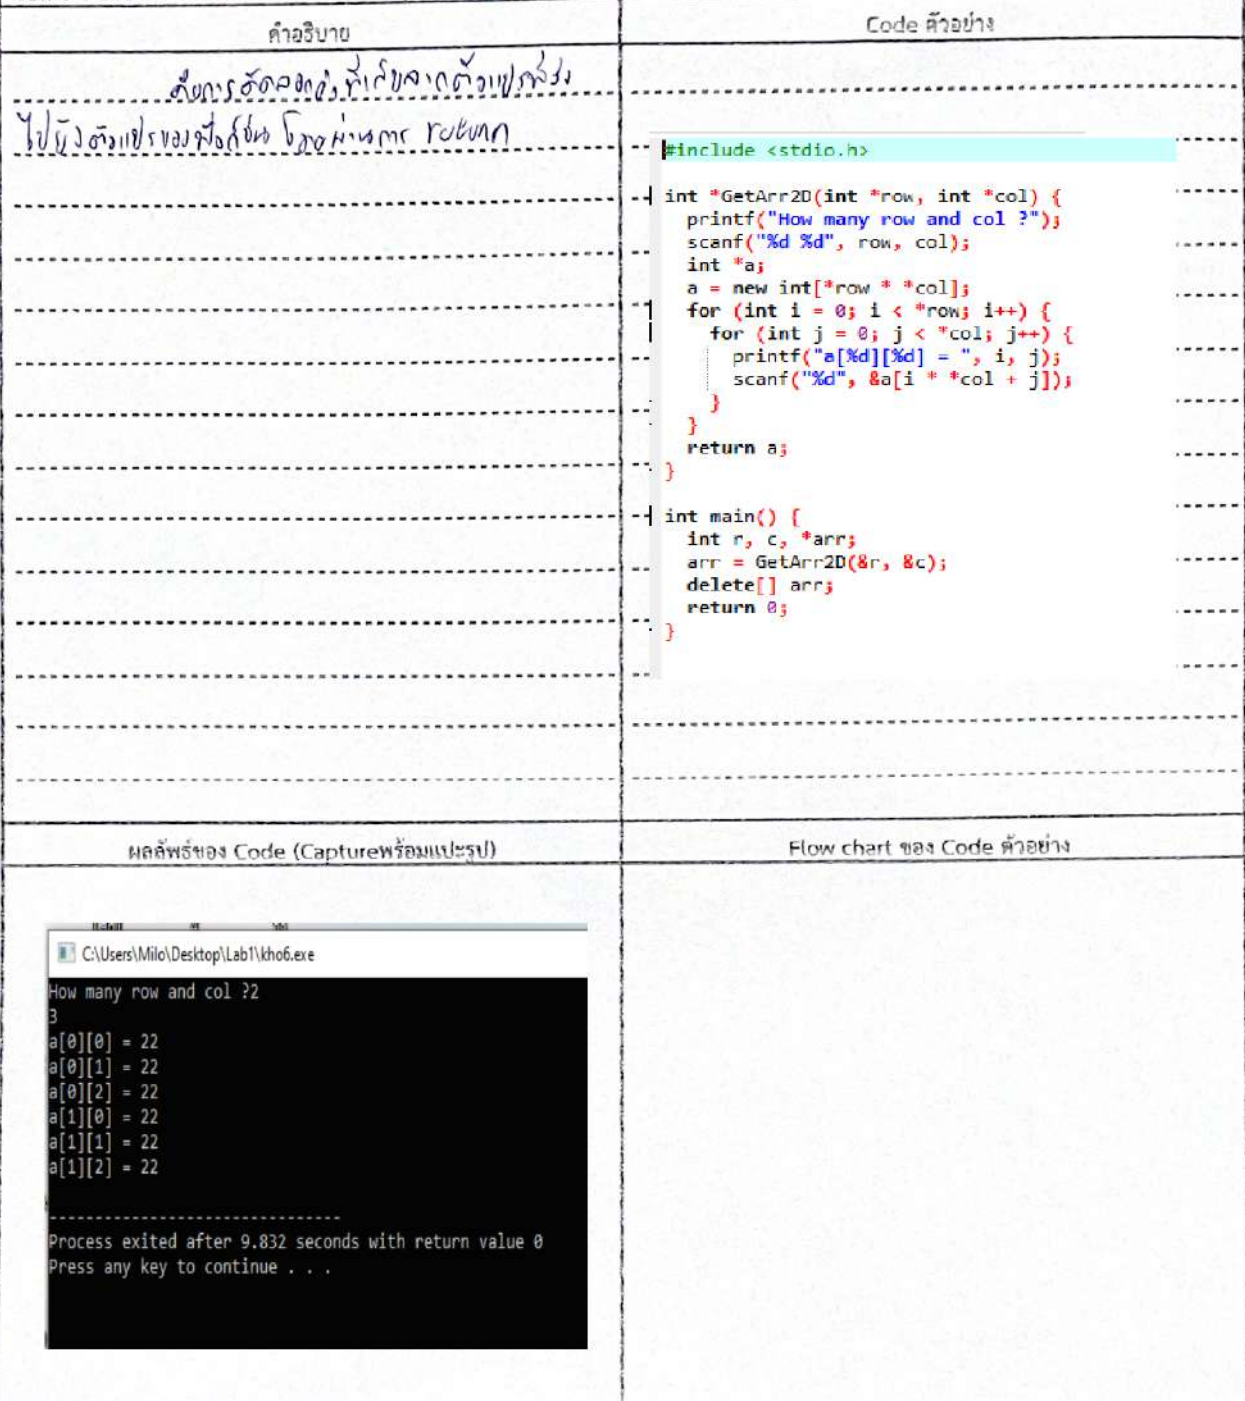 คำอธิบาย
Code ตัวอย่าง
คือการคัดลอกค่า
ไปยังตัวแปรของฟังก์ชัน โดยผ่านการ return
#include <stdio.h>
int *GetArr2D(int *row, int *col) {
printf("How many row and col ?");
scanf("%d %d", row, col);
int *a;
a = new int[*row * *col];
for (int i = 0; i < *row; i++) {
for (int j = 0; j < *col; j++) {
printf("a[%d][%d] = ", i, j);
scanf("%d", &a[i * *col + j]);
}
}
return a;
}
int main() {
int r, c, *arr;
arr = GetArr2D(&r, &c);
delete[] arr;
return 0;
}
ผลลัพธ์ของ Code (Captureพร้อมแปะรูป)
Flow chart ของ Code ตัวอย่าง
C:\Users\Milo\Desktop\Lab1\kho6.exe
How many row and col ?2
3
a[0][0] = 22
a[0][1] = 22
a[0][2] = 22
a[1][0] = 22
a[1][1] = 22
a[1][2] = 22
--------------------------------
Process exited after 9.832 seconds with return value 0
Press any key to continue . . .